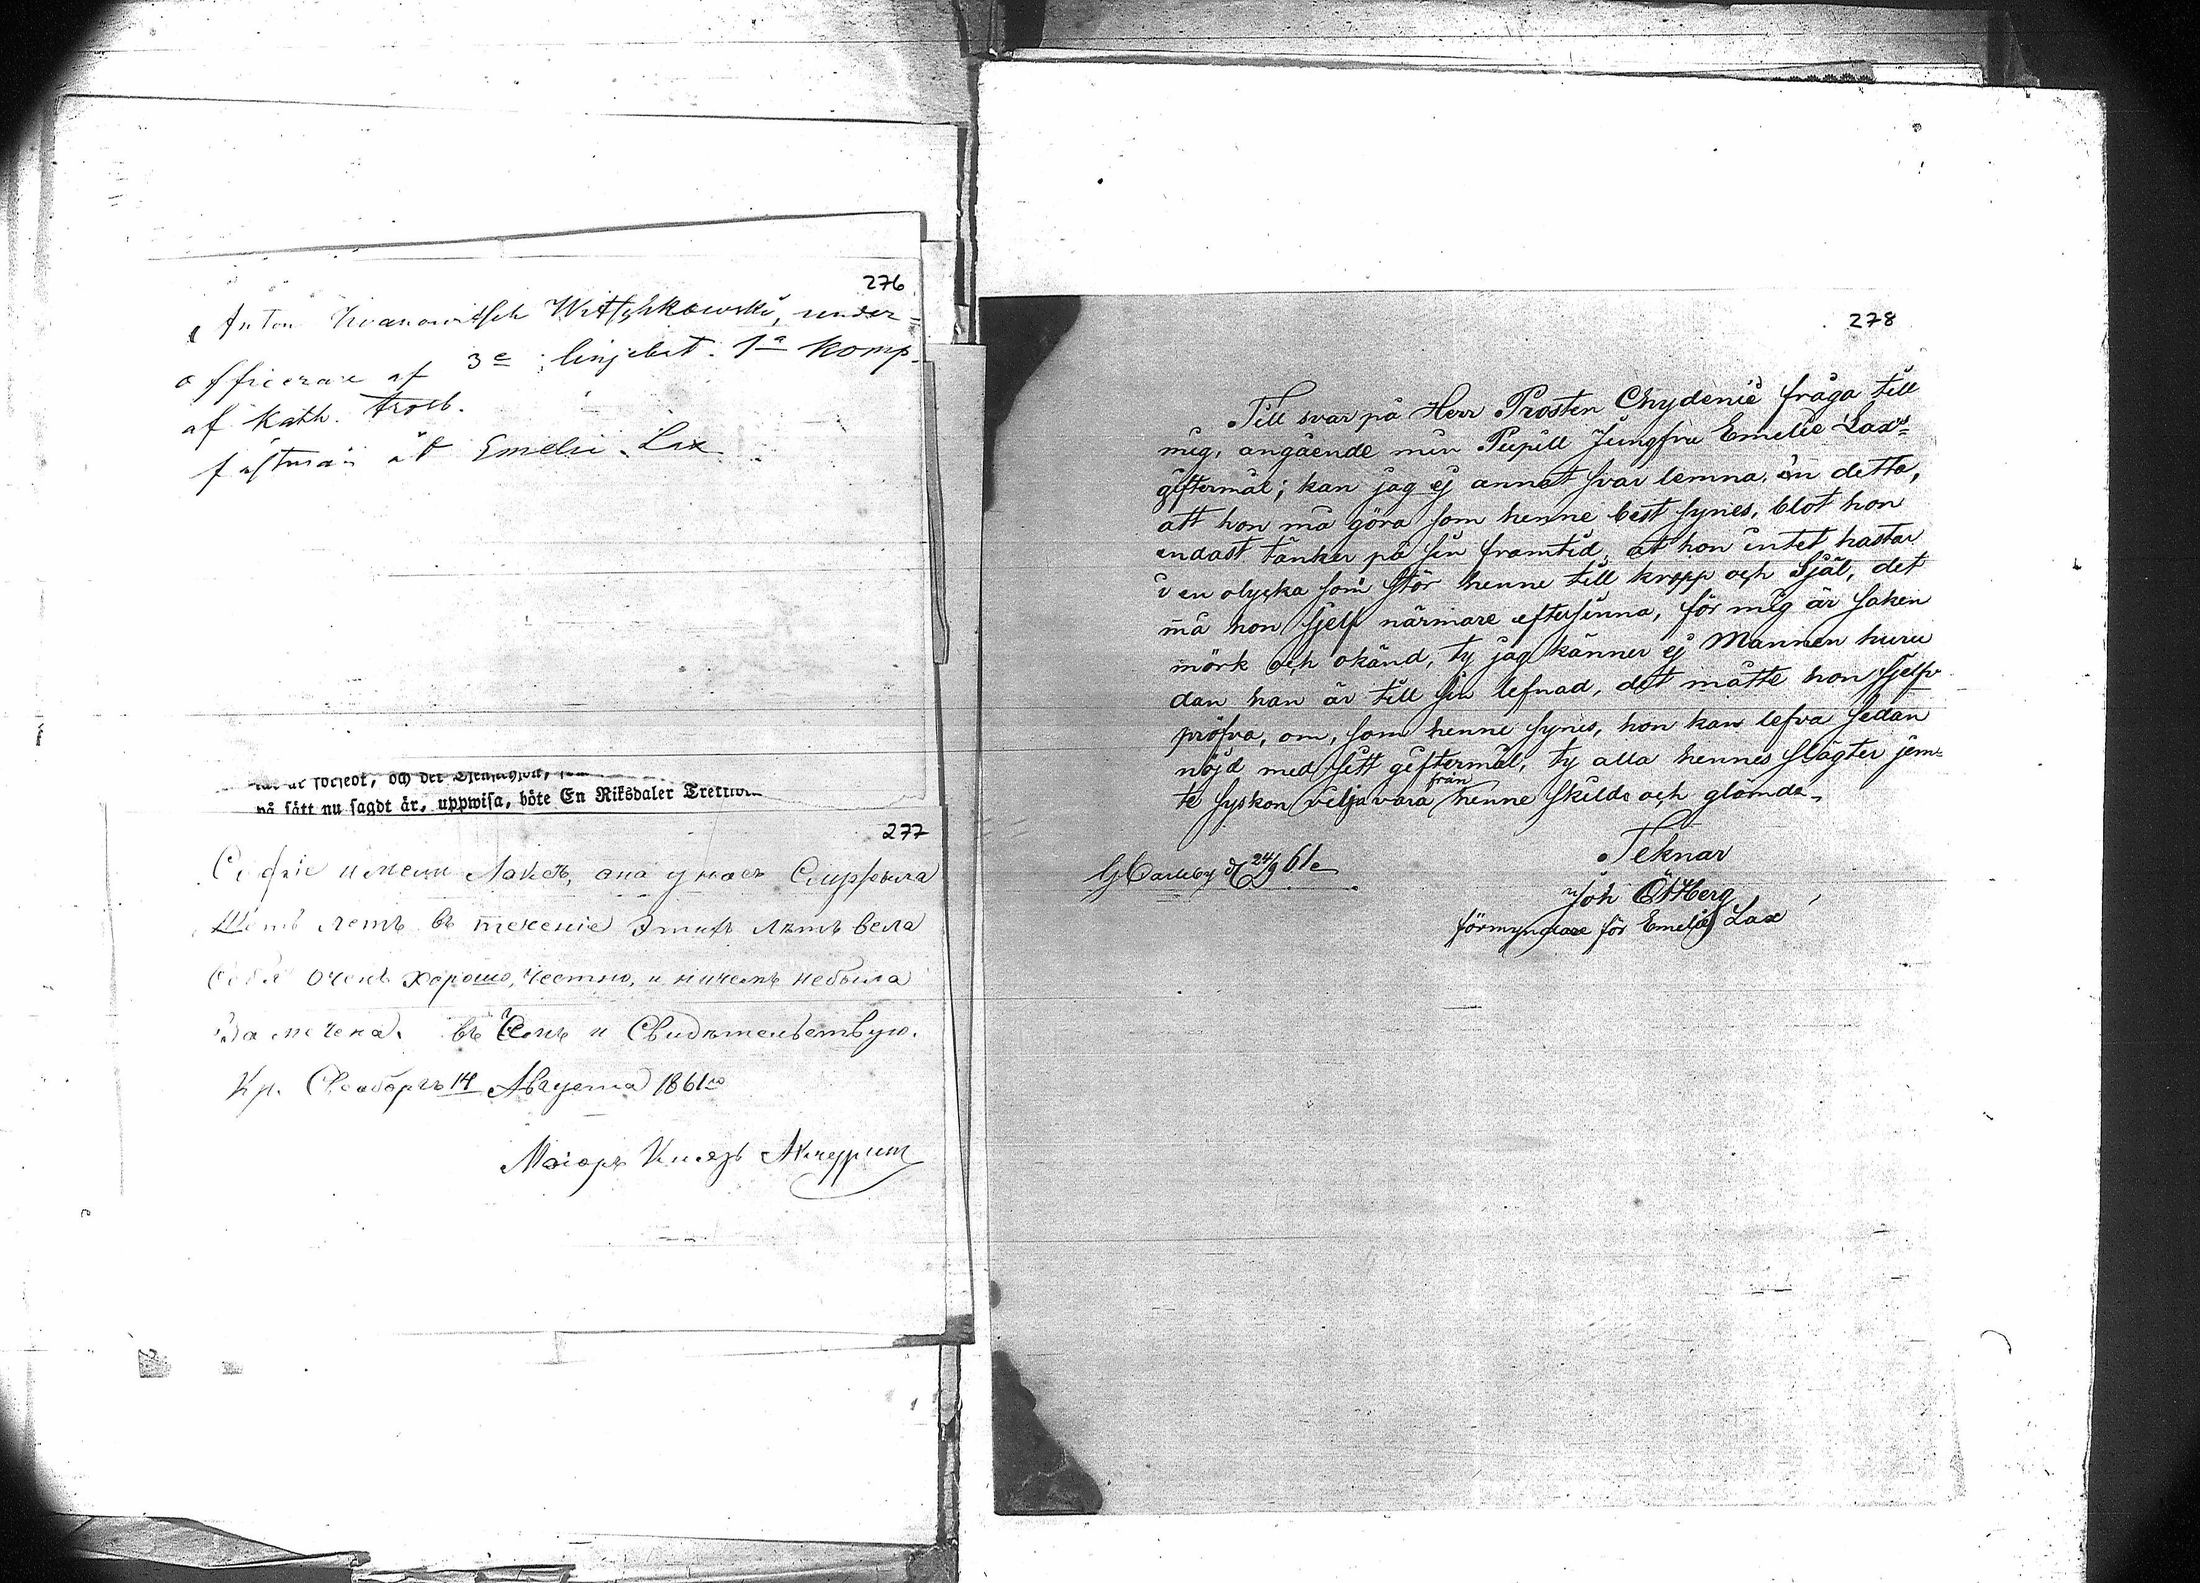 276
Anton Iwanowitsch Witschkowski, under=
officerare af 3e linjebat. 1a Komp.
af Kath. troeb.
fästman åt Emelie Lax
på sätt nu sagdt är, uppwisa, böte En Riksdaler
277
Лаксъ, она у насъ
летъ въ течение этихъ летъ вела
себя очень хорошо, честно, и ничемъ небыла
замечена. въ чемъ и Свидѣтельствую.
Кр. 14 Августа 1861го
Маіоръ Князь
278
Till svar på Herr Prosten Chydenie fråga till
mig, angående min Pupill Jungfru Emelie Lax's=
giftermål; kan jag ej annat svar lemna, än detta,
att hon må göra som henne best synes, blot hon
endast tänker på sin framtid, at hon intet hastar
i en olycka som stör henne till kropp och Själ, det
må hon sjelf närmare eftersinna, för mig är saken
mörk och okänd, ty jag känner ej Mannen huru
dan han är till sin lefnad, det måtte hon sjelf
pröfva, om, som henne synes, hon kan lefva sedan
nöjd med sitt giftermål, ty alla hennes slägter jem=
te syskon vilja vara från henne skilde och glömda.
Teknar
GCarleby d 24/9 61
Joh Östberg
förmyndare för Emelie Lax